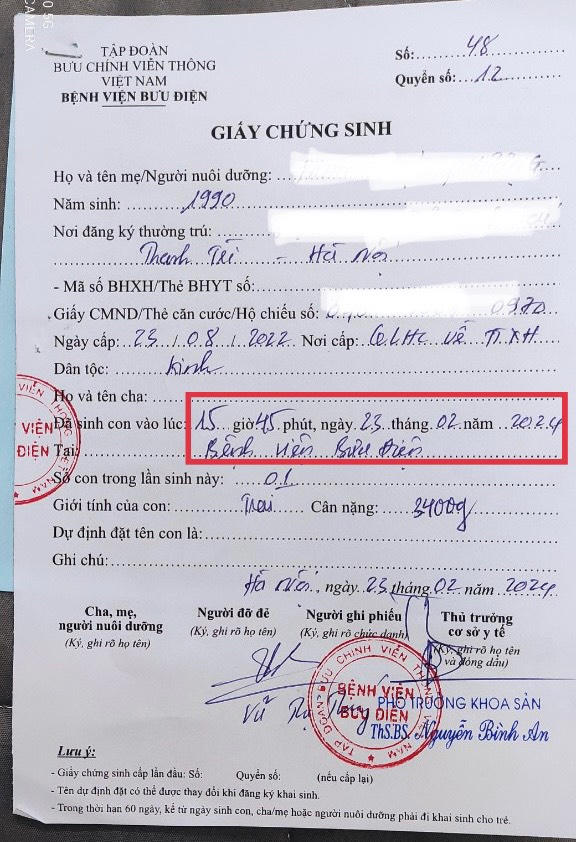 0.5G
CAMERA
TẬP ĐOÀN
BƯU CHÍNH VIỄN THÔNG
VIỆT NAM
BỆNH VIỆN BƯU ĐIỆN
Số: 48
Quyển số: 12
GIẤY CHỨNG SINH
Họ và tên mẹ/Người nuôi dưỡng:
Năm sinh: 1990
Nơi đăng ký thường trú:
Thanh Trì - Hà Nội
- Mã số BHXH/Thẻ BHYT số:
Giấy CMND/Thẻ căn cước/Hộ chiếu số: 0970
Ngày cấp: 23/08/2022 Nơi cấp: QLHC về TTXH
Dân tộc: Kinh
Họ và tên cha:
Đã sinh con vào lúc: 15 giờ 45 phút, ngày 23 tháng 02 năm 2024
Tại: Bệnh viện Bưu Điện
Số con trong lần sinh này: 01
Giới tính của con: Trai Cân nặng: 3400g
Dự định đặt tên con là:
Ghi chú:
Hà Nội, ngày 23 tháng 02 năm 2024
Cha, mẹ,
người nuôi dưỡng
(Ký, ghi rõ họ tên)
Người đỡ đẻ
(Ký, ghi rõ họ tên)
Người ghi phiếu
(Ký, ghi rõ chức danh)
Thủ trưởng
cơ sở y tế
(Ký, ghi rõ họ tên
và đóng dấu)
BỆNH VIỆN
BƯU ĐIỆN
PHÓ TRƯỞNG KHOA SẢN
ThS.BS. Nguyễn Bình An
Vũ
Lưu ý:
- Giấy chứng sinh cấp lần đầu: Số: Quyển số: (nếu cấp lại)
- Tên dự định đặt có thể được thay đổi khi đăng ký khai sinh.
- Trong thời hạn 60 ngày, kể từ ngày sinh con, cha/mẹ hoặc người nuôi dưỡng phải đi khai sinh cho trẻ.